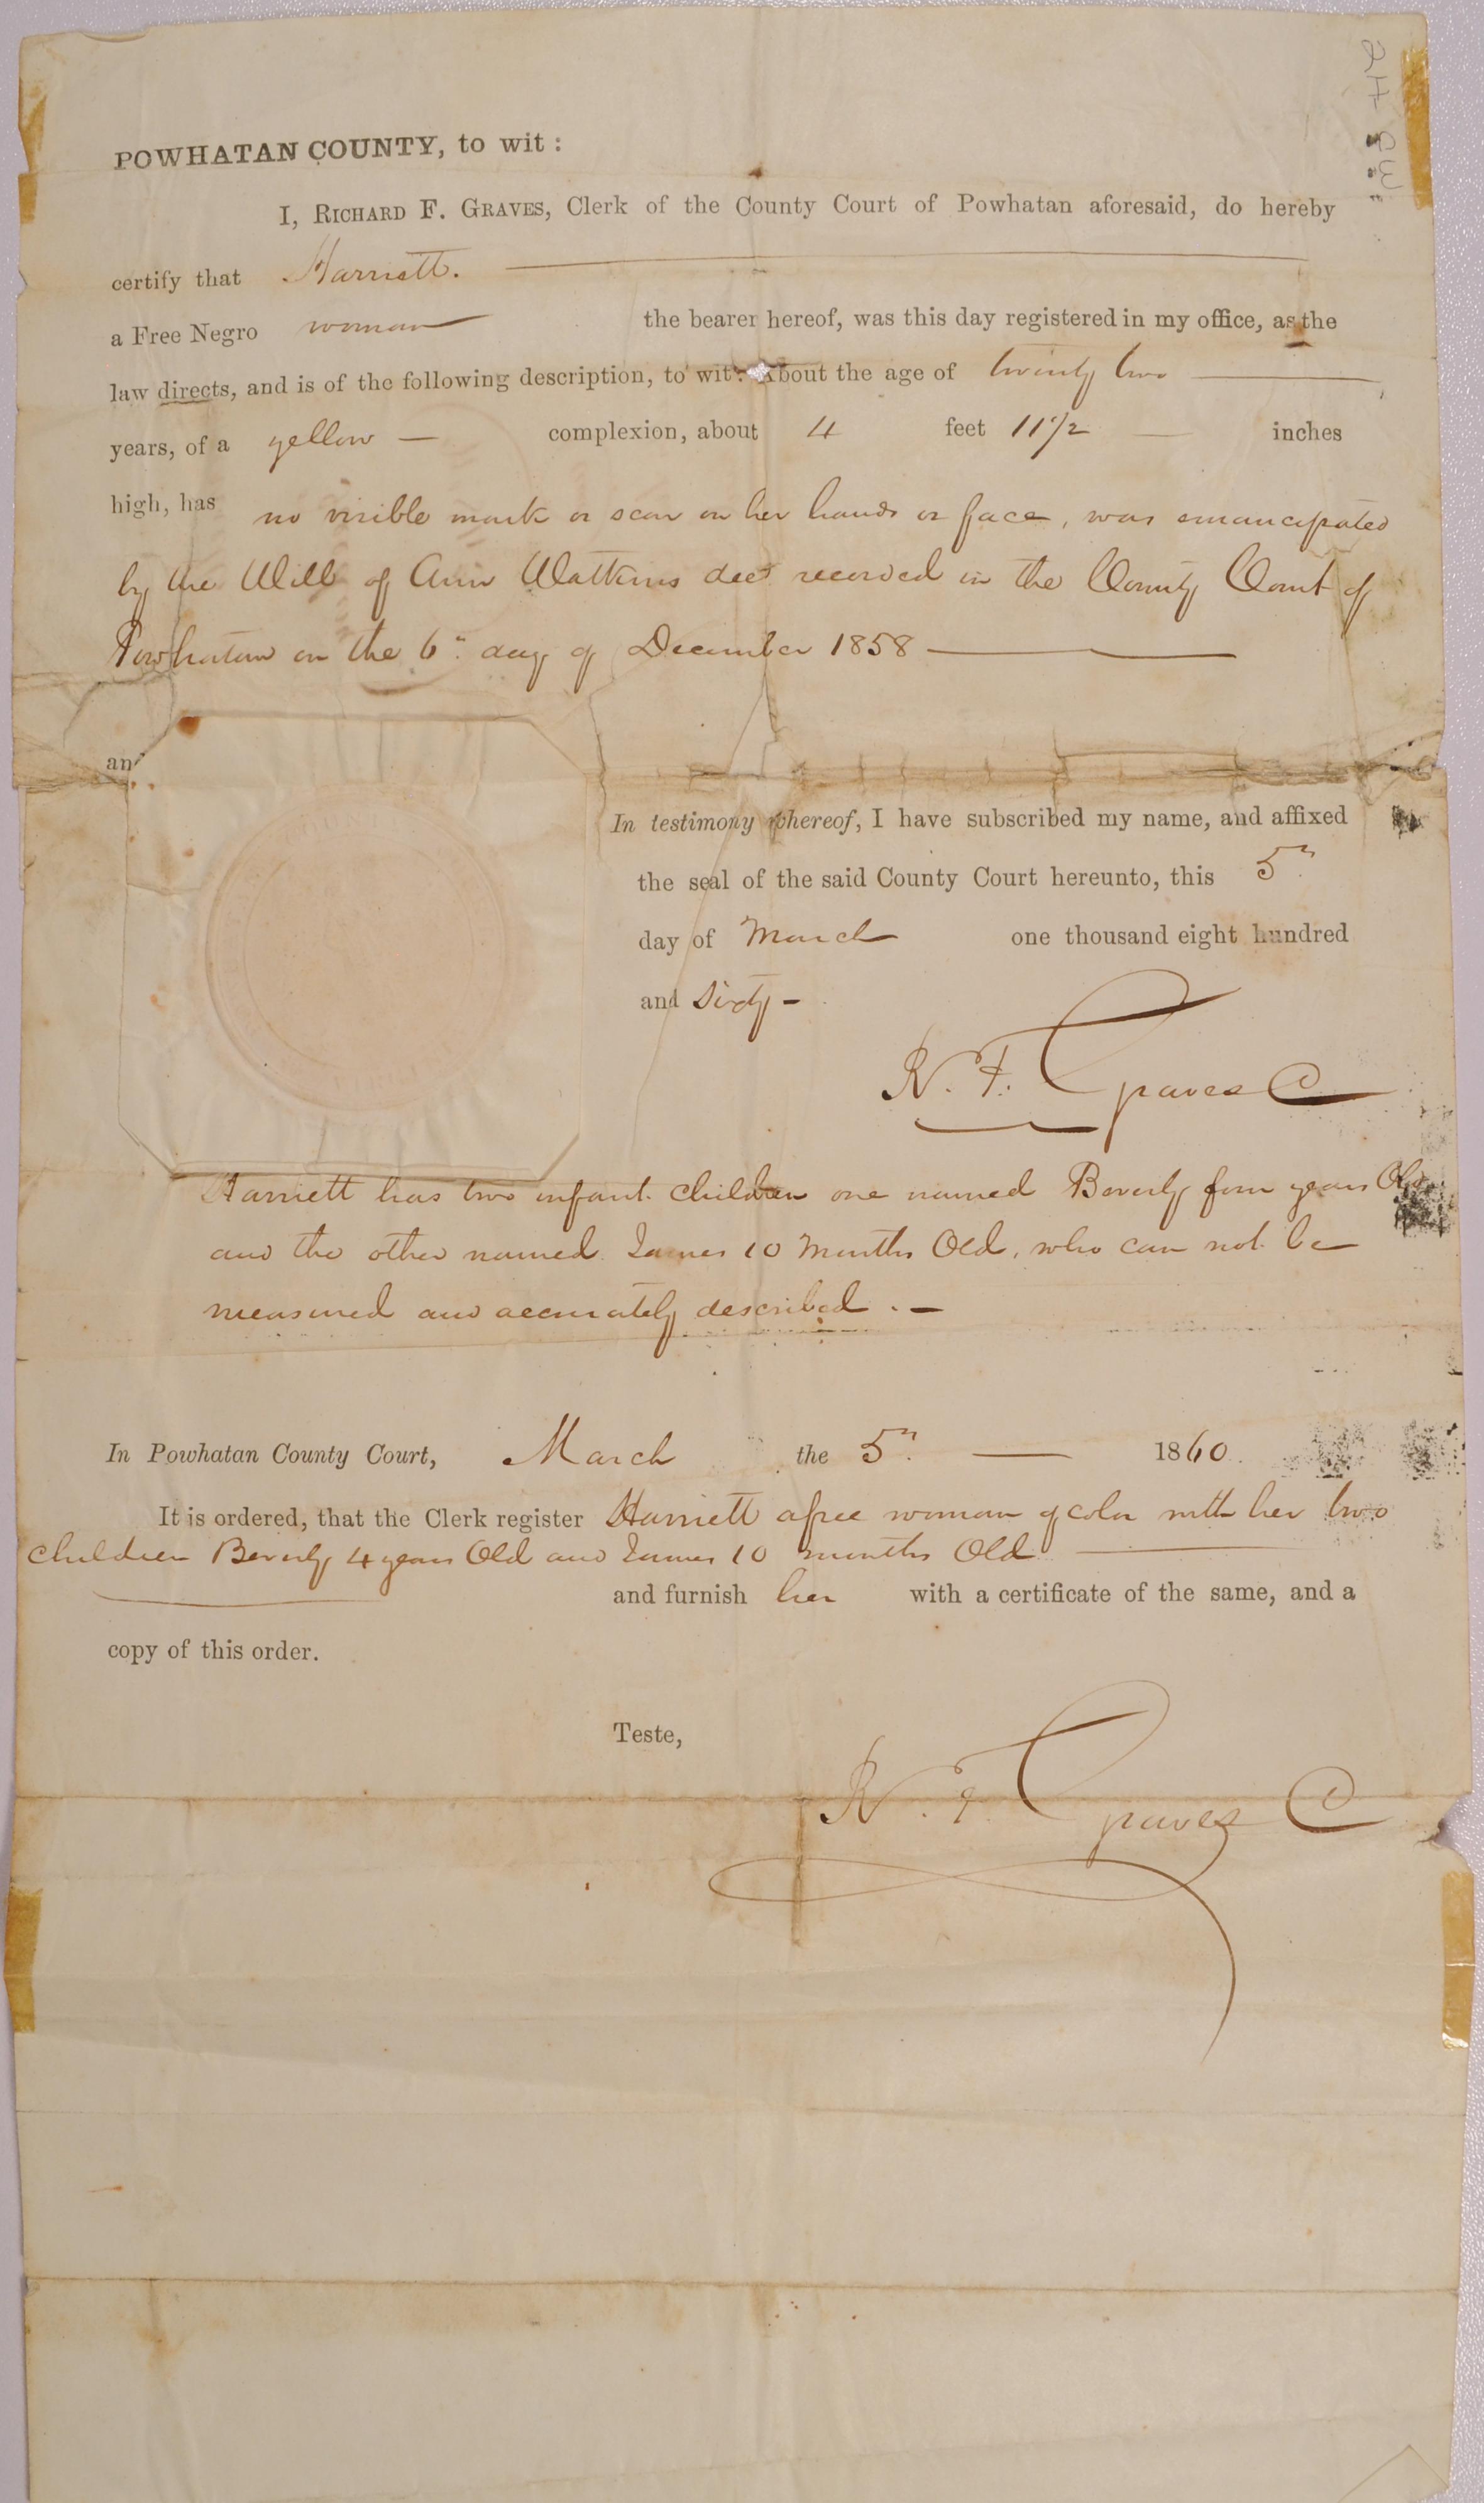 POWHATAN COUNTY, to wit :
I, RICHARD F. GRAVES, Clerk of the County Court of Powhatan aforesaid, do hereby
certify that Harriett.
a Free Negro woman the bearer hereof, was this day registered in my office, as the
law directs, and is of the following description, to wit: About the age of twenty two
years, of a yellow — complexion, about 4 feet 11 1/2 — inches
high, has no visible mark or scar on her hands or face, was emancipated
by the Will of Ann Watkins decd recorded in the County Court of
Powhatan on the 6th day of December 1858
an
In testimony whereof, I have subscribed my name, and affixed
the seal of the said County Court hereunto, this 5th
day of March one thousand eight hundred
and Sixty –
R. F. Graves C
Harriett has two infant children one named Beverly four years Old
and the other named James 10 Months Old, who can not be
measured and accurately described. –
In Powhatan County Court, March the 5th — 1860.
It is ordered, that the Clerk register Harriett a free woman of color with her two
children Beverly 4 years Old and James 10 months Old
and furnish her with a certificate of the same, and a
copy of this order.
Teste,
R. F. Graves C